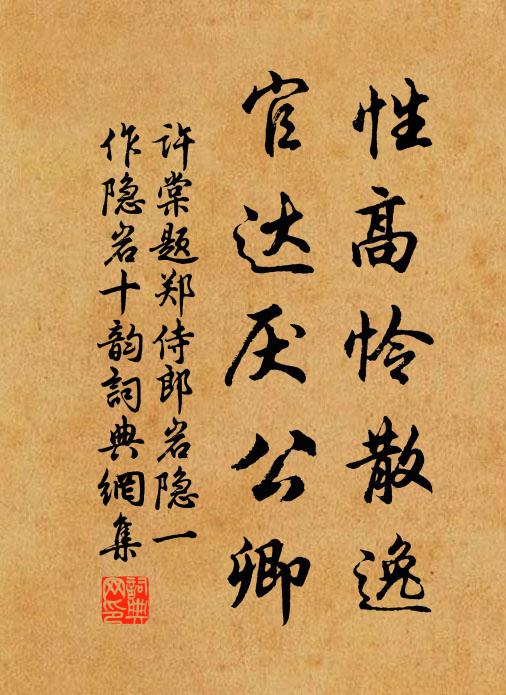 性高怜散逸
官达厌公卿
许棠题郑侍郎岩隐一
作隐岩十韵詞典網集
詞典網印